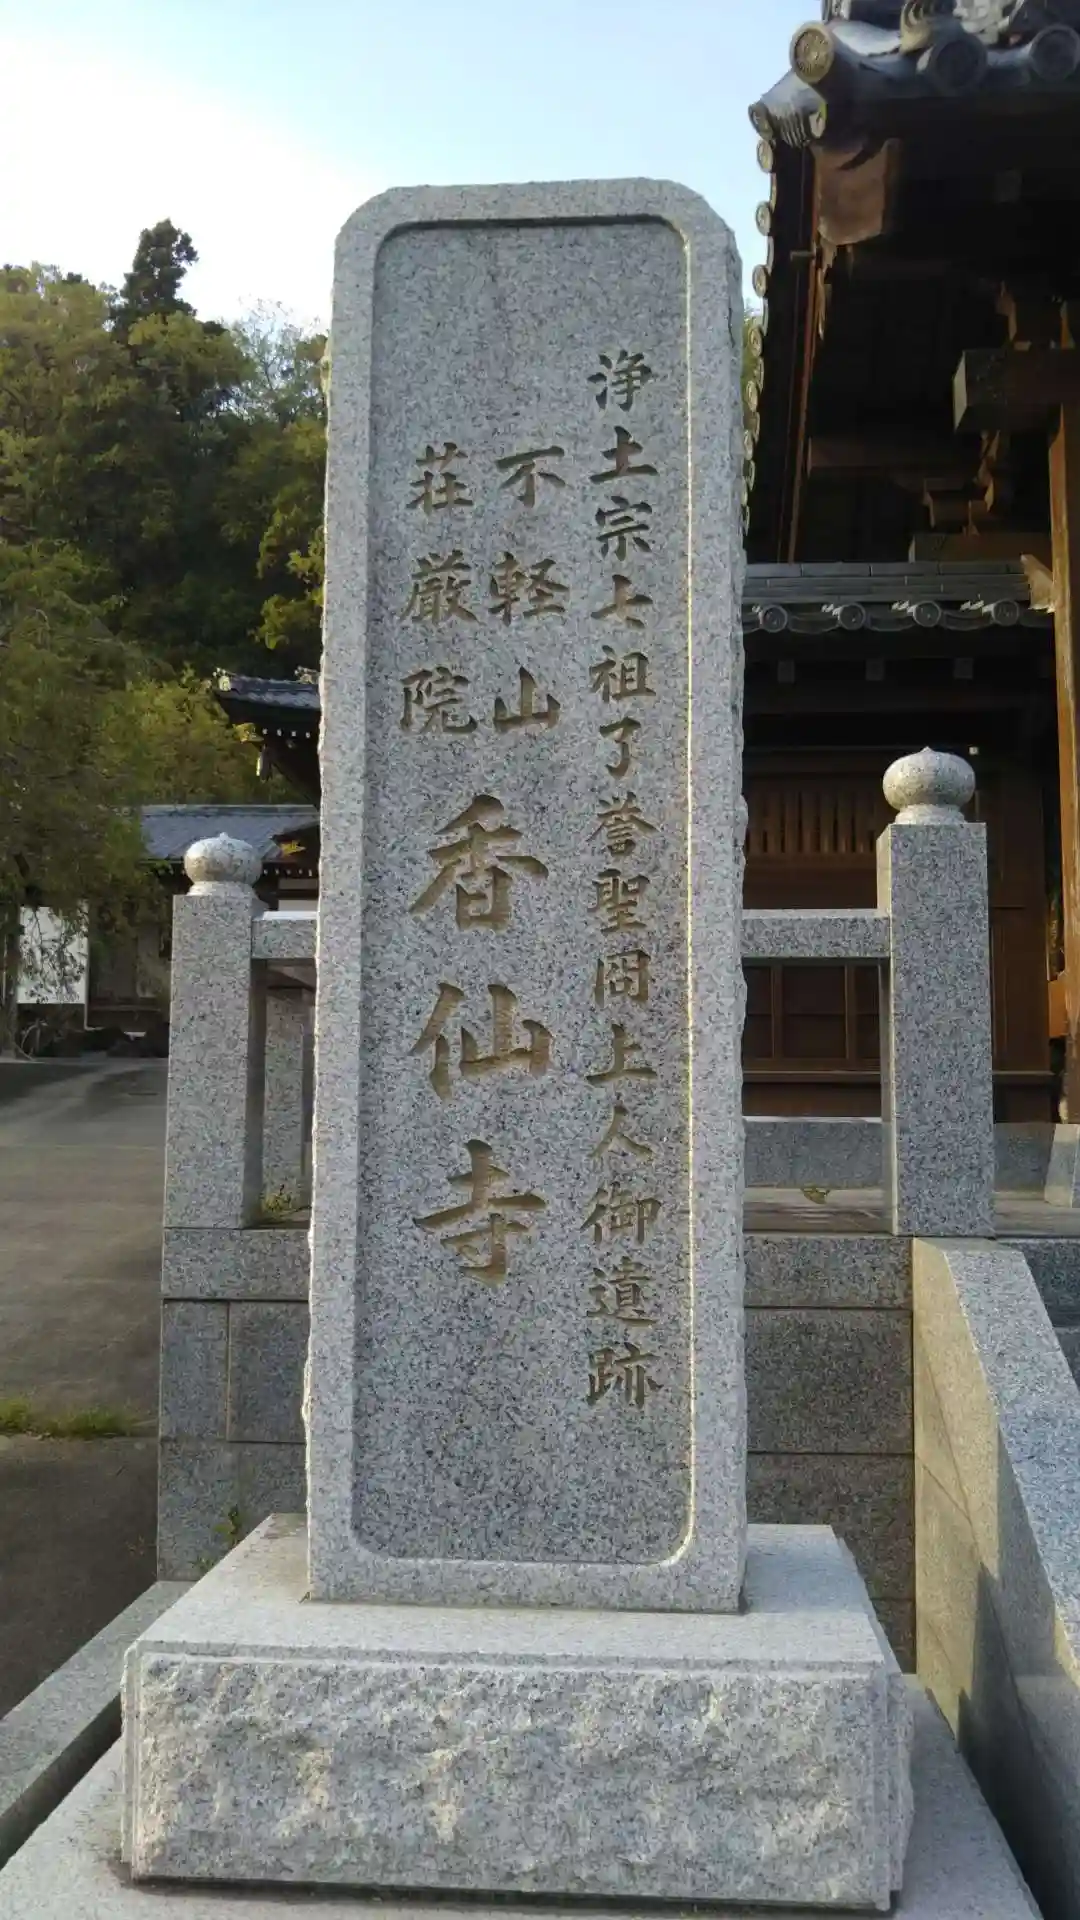 浄土宗七祖了誉聖冏上人御遺跡
不軽山
荘厳院
香仙寺